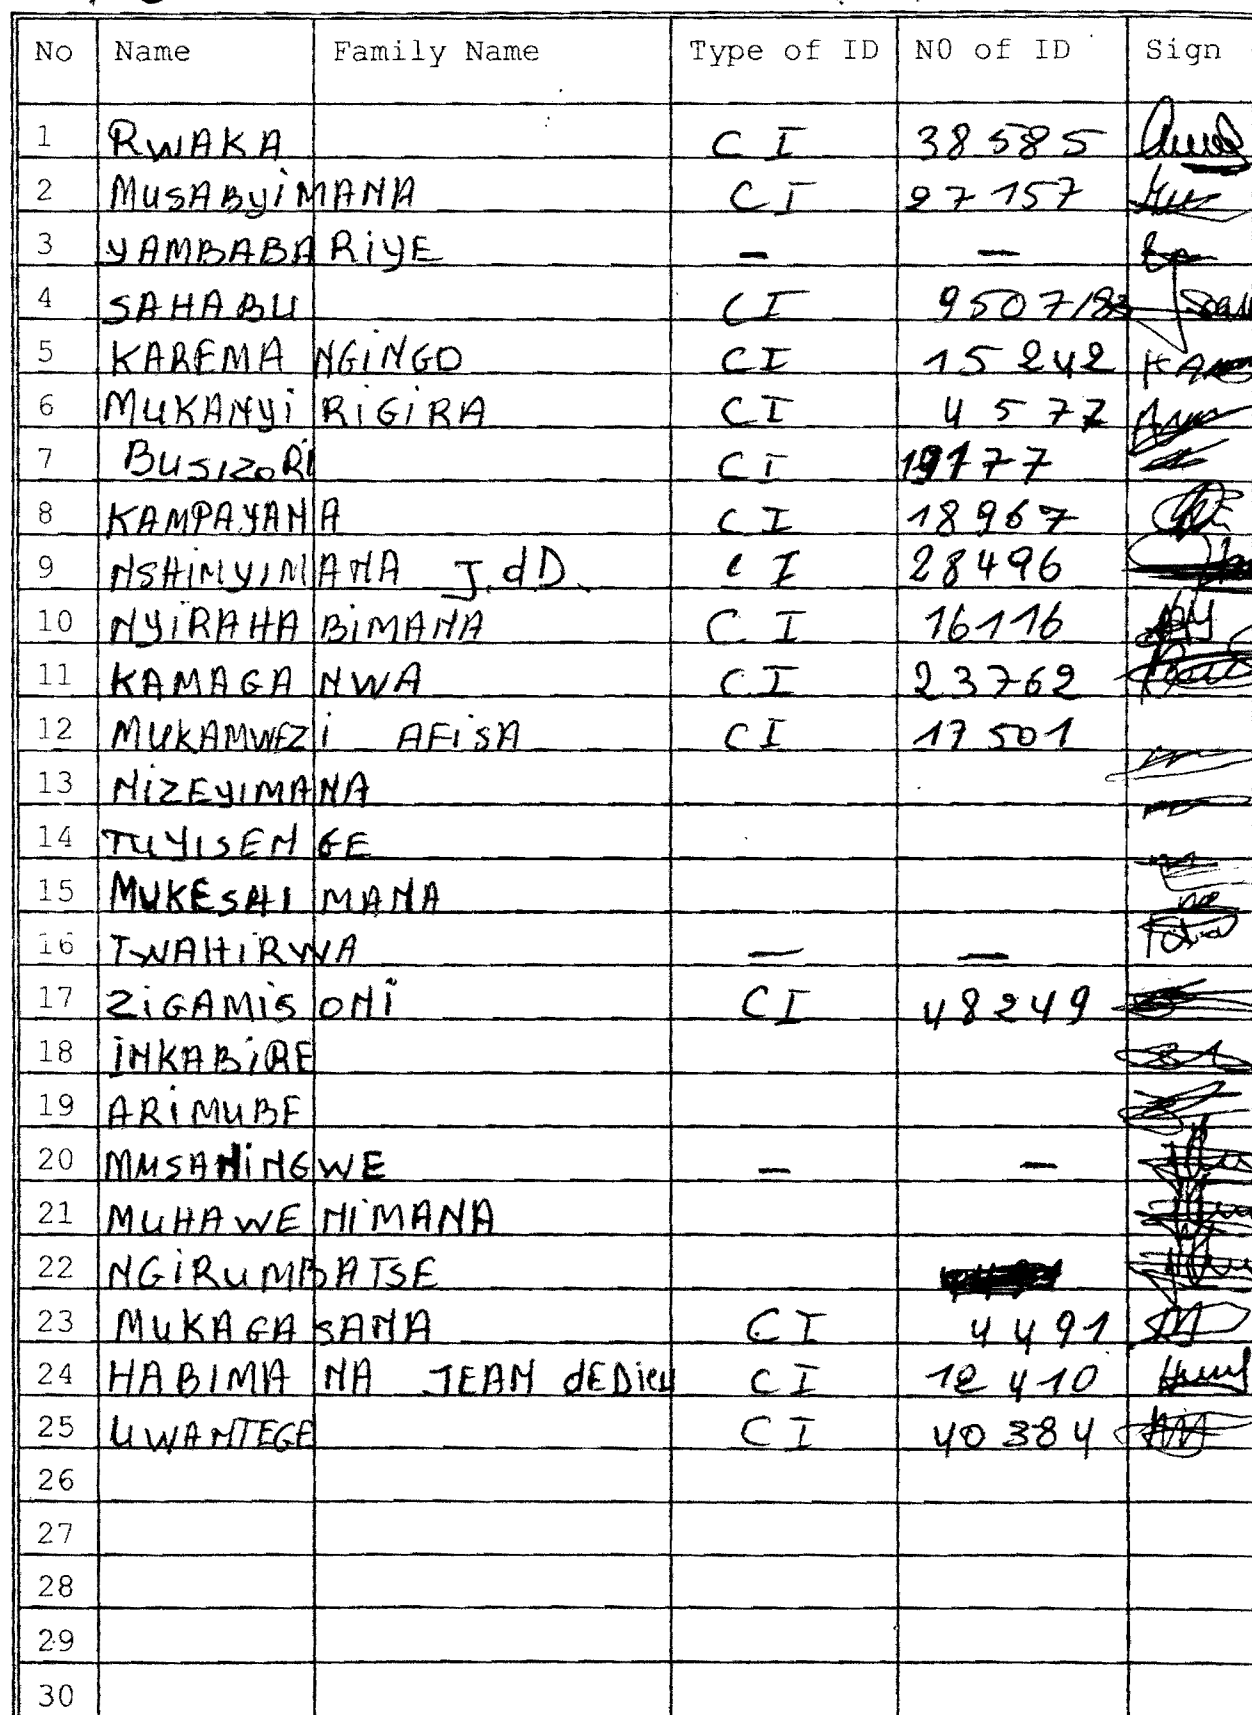 No Name Family Name Type of ID N0 of ID Sign
1 RWAKA CI 38585
2 MUSAByiMANA CI 27157
3 YAMBABARiYE — —
4 SAHABU CI 9507/83
5 KAREMA NGiNGO CI 15242
6 MUKANYiRiGiRA CI 4577
7 BUSIZORi CI
8 KAMPAYANA CI 18967
9 NSHIMYIMANA J.dD. CI 28496
10 NYiRAHABiMANA CI 16116
11 KAMAGANWA CI 23762
12 MUKAMWEZi AFiSA CI 17501
13 NiZEYIMANA
14 TUYISENGE
15 MUKESHIMANA
16 TWAHiRWA — —
17 ZiGAMiSONi CI 48249
18 iNKABiRE
19 ARiMUBE
20 MUSANiNGWE — —
21 MUHAWENIMANA
22 NGiRUMBATSE
23 MUKAGASANA CI 4491
24 HABIMANA JEAN dEDieu CI 12410
25 UWANTEGE CI 40384
26
27
28
29
30